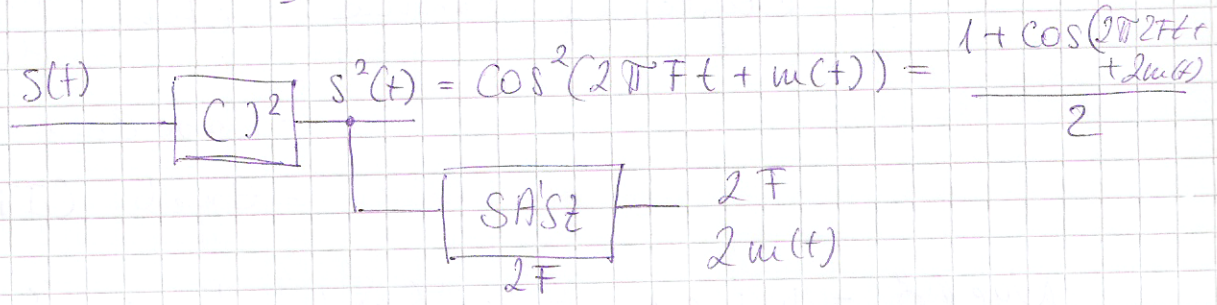 s(t)
( )²
s²(t) = cos²(2πFt + m(t)) = (1 + cos(2π2Ft + + 2m(t)) / 2
SÁSZ
2F
2F
2m(t)